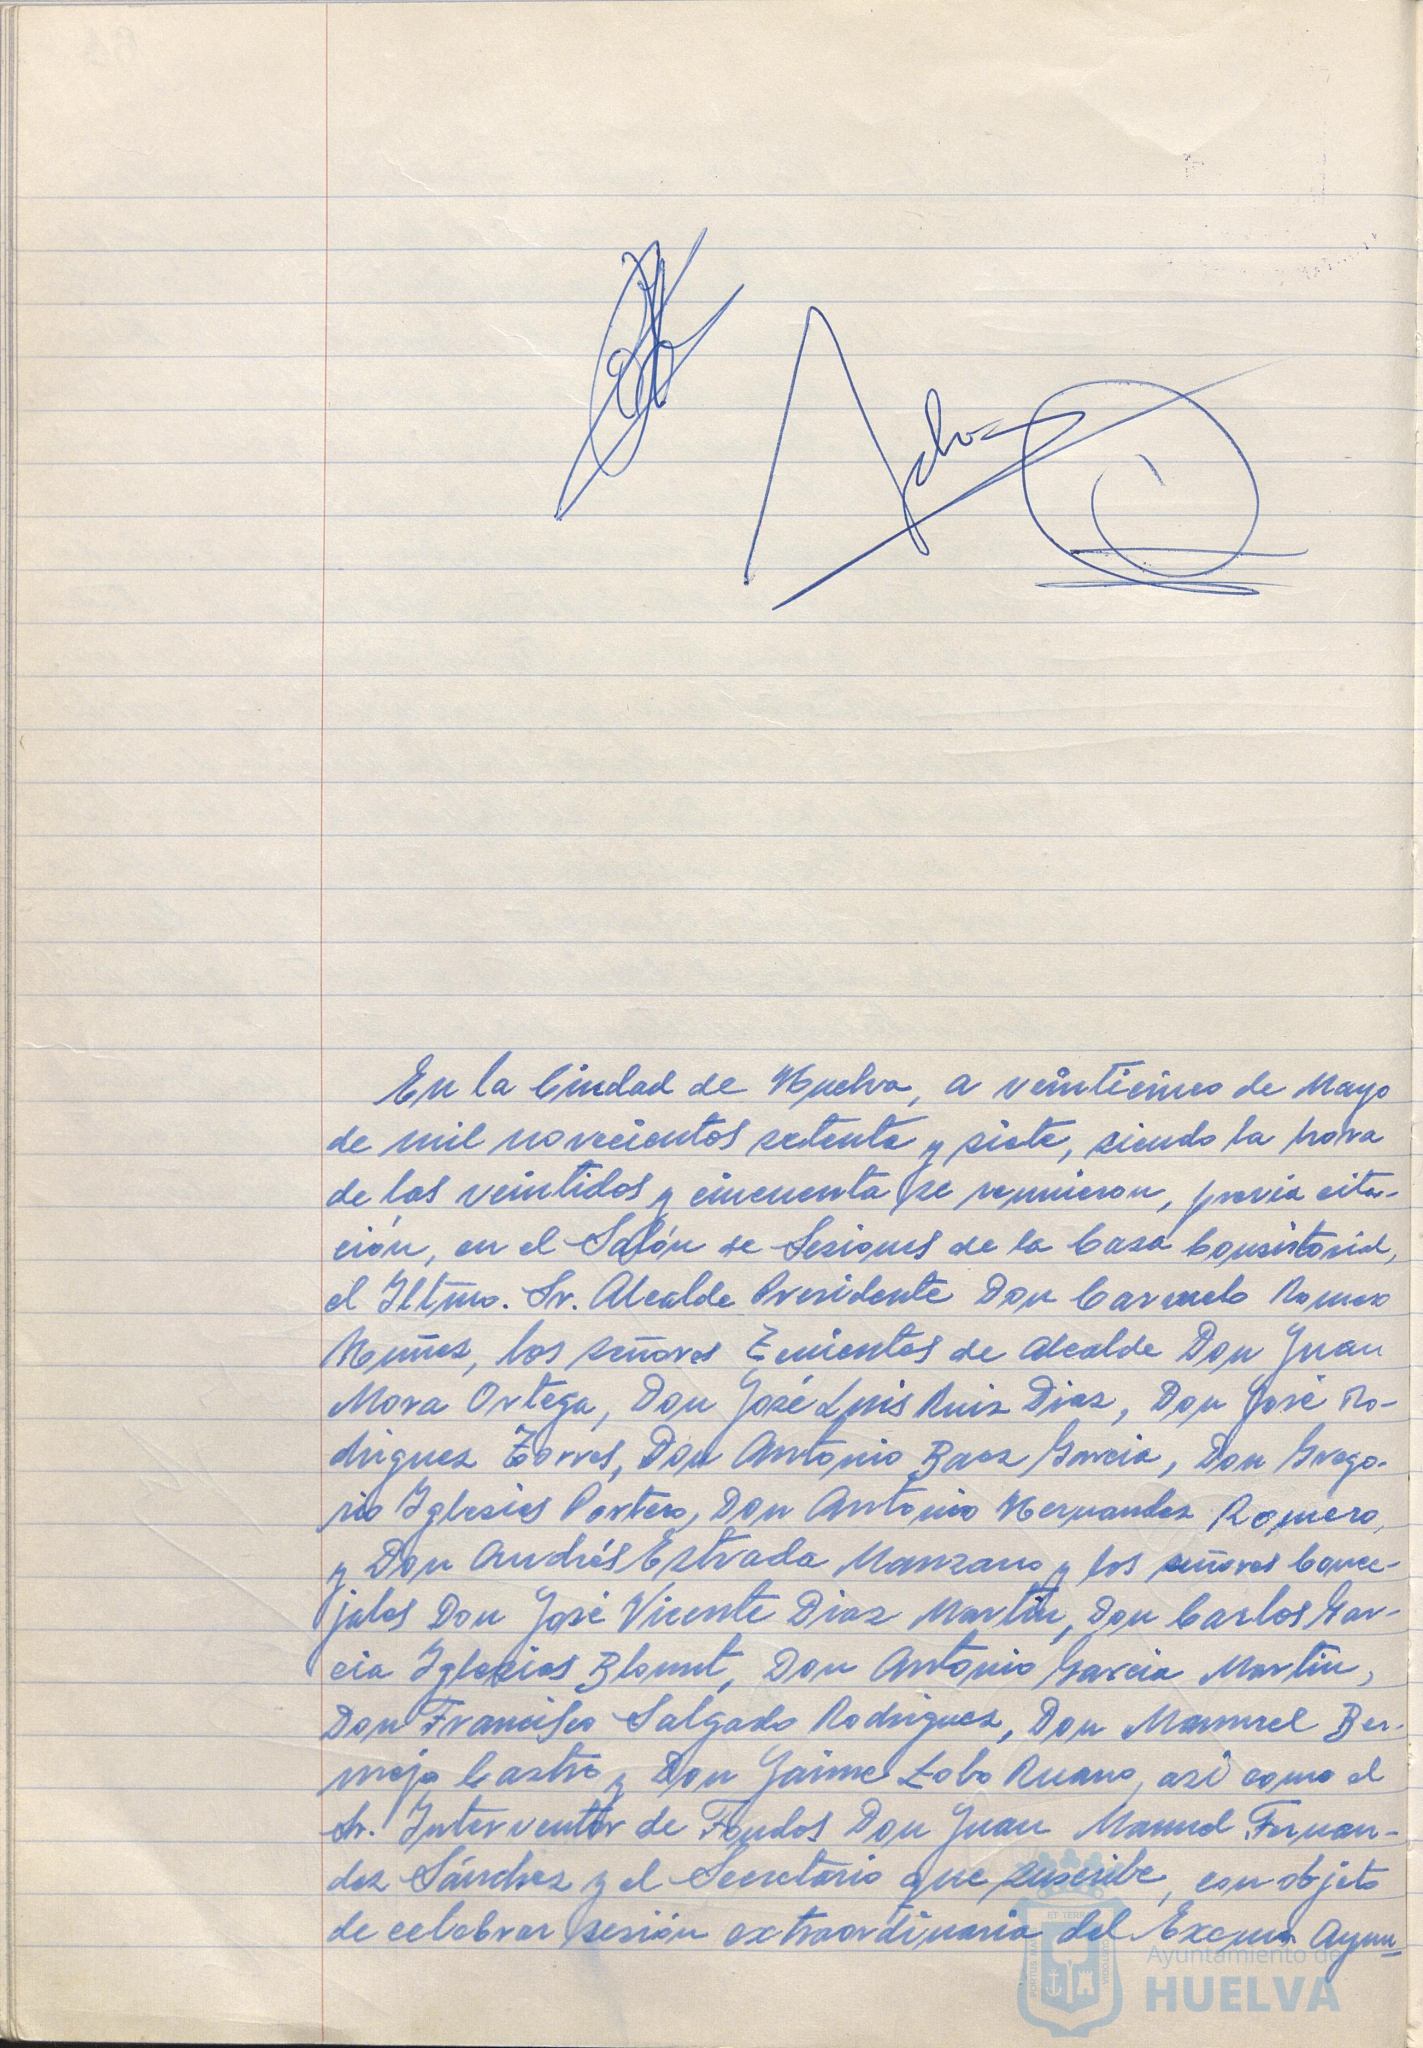 En la Ciudad de Huelva, a veinticinco de Mayo
de mil novecientos setenta y siete, siendo la hora
de las veintidos y cincuenta se reunieron, previa cita-
ción, en el Salón de Sesiones de la Casa Consistorial,
el Iltmo. Sr. Alcalde Presidente Don Carmelo Romero
Nuñez, los señores Tenientes de Alcalde Don Juan
Mora Ortega, Don José Luis Ruiz Diaz, Don José Ro-
driguez Torres, Don Antonio Baez Garcia, Don Grego-
rio Iglesias Portero, Don Antonio Hernandez Romero,
y Don Andrés Estrada Manzano y los señores Conce-
jales Don José Vicente Diaz Martin, Don Carlos Gar-
cia Iglesias Blount, Don Antonio Garcia Martin,
Don Francisco Salgado Rodriguez, Don Manuel Ber-
mejo Castro y Don Jaime Lobo Ruano, asi como el
Sr. Interventor de Fondos Don Juan Manuel Fernan-
dez Sánchez y el Secretario que suscribe, con objeto
de celebrar sesión extraordinaria del Excmo Ayun-
Ayuntamiento de
HUELVA